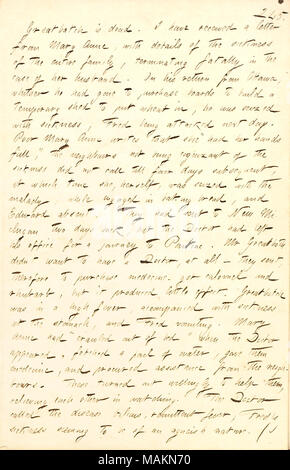 245
Greatbatch is dead. I have received a letter
from Mary Anne, with details of the sickness
of the entire family, terminating fatally in the
case of her husband. In his return from Ottawa
whither he had gone to purchase boards to build a
temporary shed to put wheat in, he was seized
with sickness Fred being attacked next day.
Poor Mary Anne writes "that she" had her hands
full," the neighbours not being cognizant of the
sickness did not call till four days subsequent
at which time she, herself, was seized with the
malady, while engaged in baking bread, and
Edward absent. They had sent to New Mi-
chigan two days since but the Doctor had left
his office for a journey to Pontiac. Mr Greatbatch
didn't want to have a Doctor at all - they sent
therefore to purchase medicine, got calomel and
rhubarb, but it produced little effect, Greatbatch
was in a high fever, accompanied with sickness
at the stomach, and Fred vomiting. Mary
Anne had "crawled out of bed" when the Doctor
appeared, fetched a pail of water, gave them
medicine, and procured assistance from the neigh-
bours. These turned out willingly to help them,
relieving each other in watching. The Doctor
called the disease bilious, remittent fever, Fred's
sickness seeming to be of an aguish nature. (I
alamy
Image ID: MAKN70
www.alamy.com